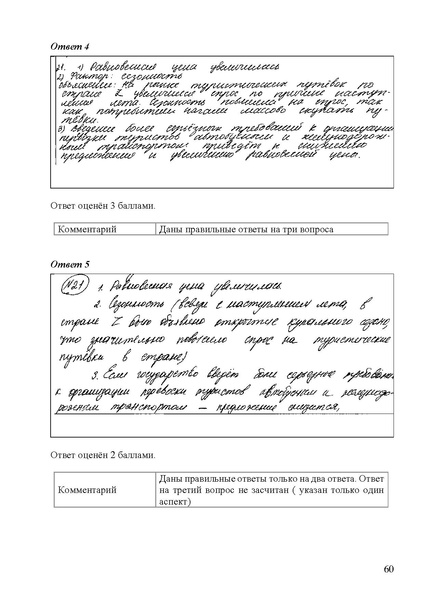 Ответ 4
21. 1) Равновесная цена увеличилась
2) Фактор: сезонность
объяснение: на рынке туристических путёвок по
стране Z увеличился спрос по причине наступ-
ления лета. Сезонность повлияла на спрос, так
как потребители начали массово скупать пу-
тёвки.
3) введение более серьёзных требований к организации
перевозки туристов автобусным и железнодорож-
ным транспортом приведёт к снижению
предложения и увеличению равновесной цены.
Ответ оценён 3 баллами.
Комментарий Даны правильные ответы на три вопроса
Ответ 5
№21 1. Равновесная цена увеличилась
2. Сезонность (вместе с наступлением лета, в
стране Z было объявлено открытие купального сезона,
что значительно повысило спрос на туристические
путёвки в стране)
3. Если государство введёт более серьёзные требован.
к организации перевозки туристов автобусным и железнодо-
рожным транспортом – предложение снизится,
Ответ оценён 2 баллами.
Комментарий Даны правильные ответы только на два ответа. Ответ
на третий вопрос не засчитан ( указан только один
аспект)
60